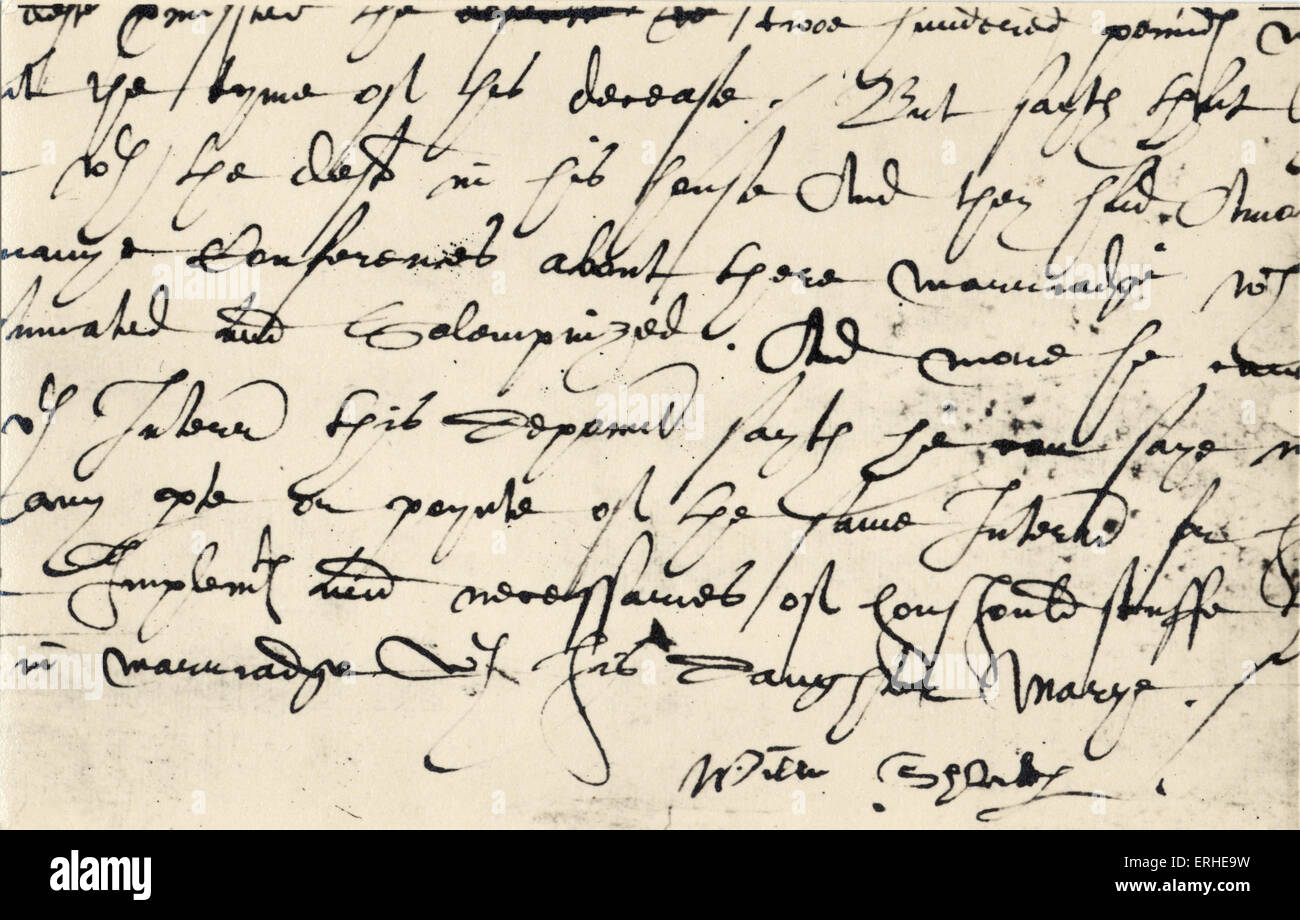 def promissed the twoe hundered pound
at the tyme of his decease. But sayth that
wth the deft in his house And they had Amo
manye Conferences about there marriadge wch
and Solempnized. And more he cann
Interr this deponnt sayth he can saye n
any pte or poynte of the same Interr for
Implemts and necessaries of houshould stuffe
in marriadge wth his daughter Marye.
Willm Shakp
alamy
Image ID: ERHE9W
www.alamy.com